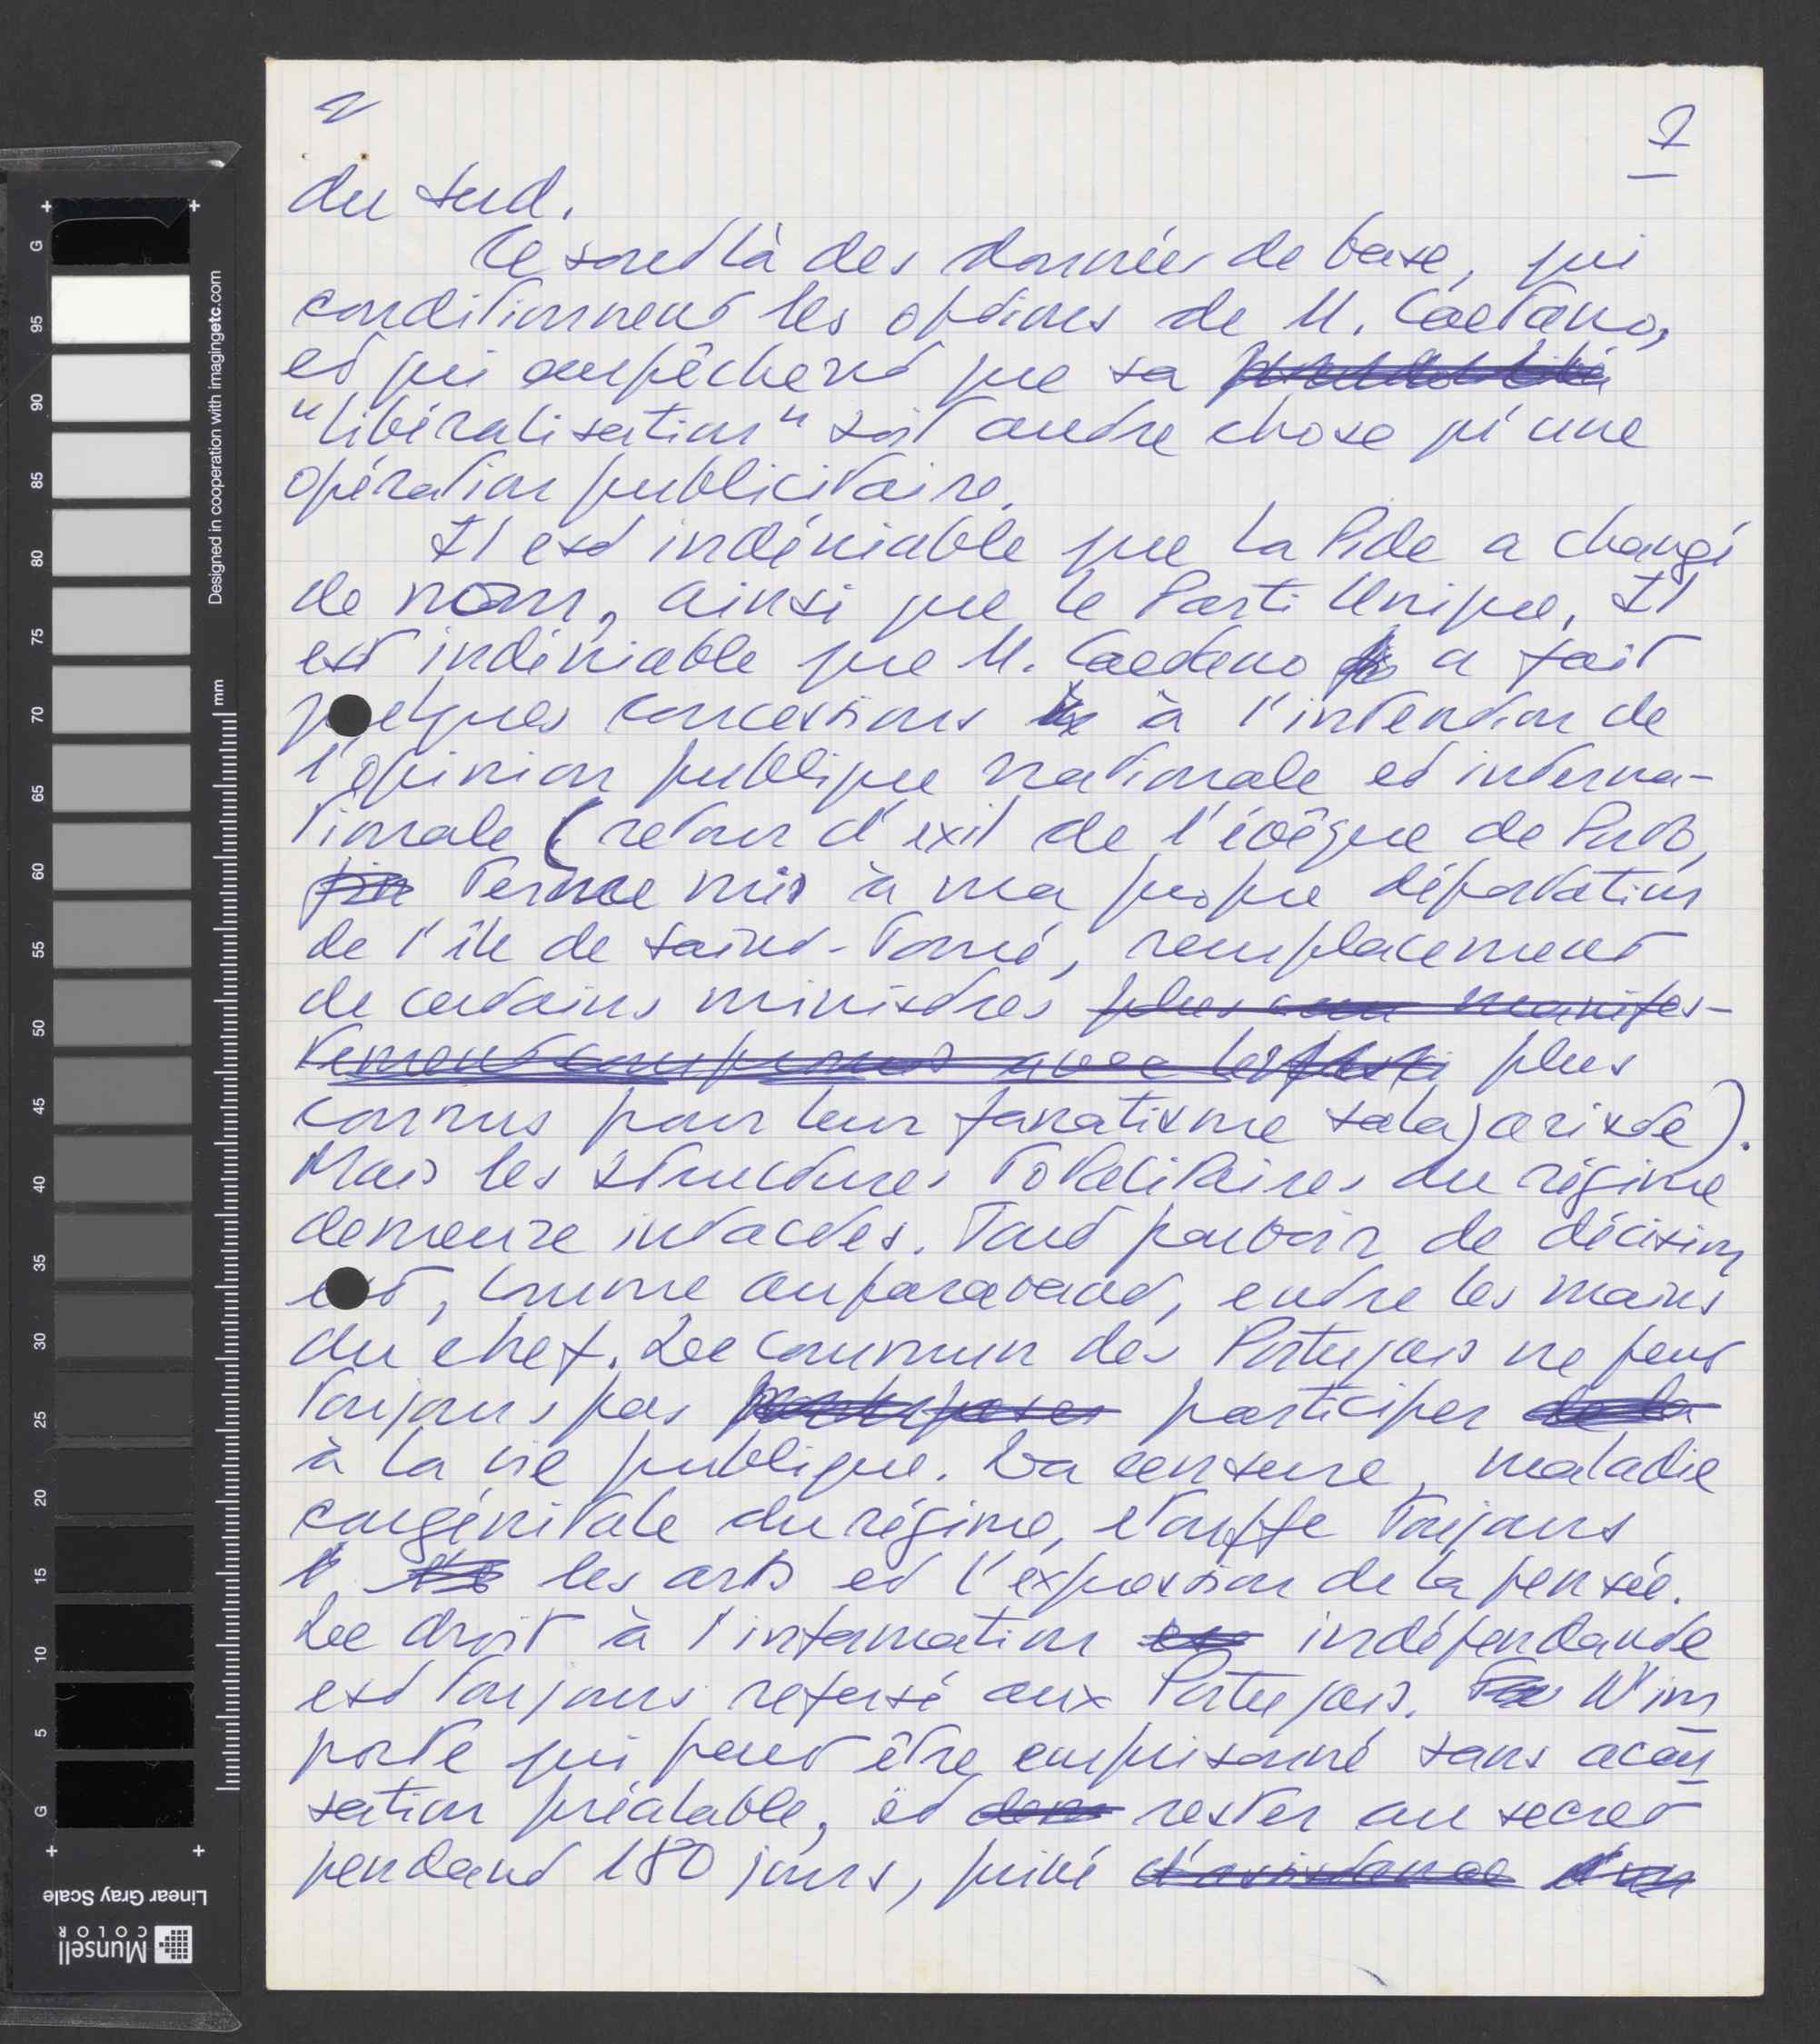 2
du sud.
Ce sont là des données de base, qui
conditionnent les options de M. Caetano,
et qui empêchent que sa
"libéralisation" soit autre chose qu'une
opération publicitaire.
Il est indéniable que la Pide a changé
de nom, ainsi que le Parti Unique. Il
est indéniable que M. Caetano a fait
quelques concessions à l'intention de
l'opinion publique nationale et interna-
tionale (retour d'exil de l'évêque de Porto,
fin terme mis à ma propre déportation
de l'île de Saint-Tomé, remplacement
de certains ministres plus manifes-
tement compromis avec les plus
connus pour leur fanatisme salazariste).
Mais les structures totalitaires du régime
demeure intactes. Tout pouvoir de décision
est, comme auparavant, entre les mains
du chef. Le commun des Portugais ne peut
toujours pas participer de la
à la vie publique. La censure, maladie
congénitale du régime, etouffe toujours
l' les arts et l'expression de la pensée.
Le droit à l'information indépendante
est toujours refusé aux Portugais. N'im
porte qui peut être emprisonné sans accu
sation préalable, et dem rester au secret
pendant 180 jours, privé d'assistance d'un
Designed in cooperation with imagingetc.com
mm
G 95 90 85 80 75 70 65 60 55 50 45 40 35 30 25 20 15 10 5 G
Linear Gray Scale
Munsell
COLOR